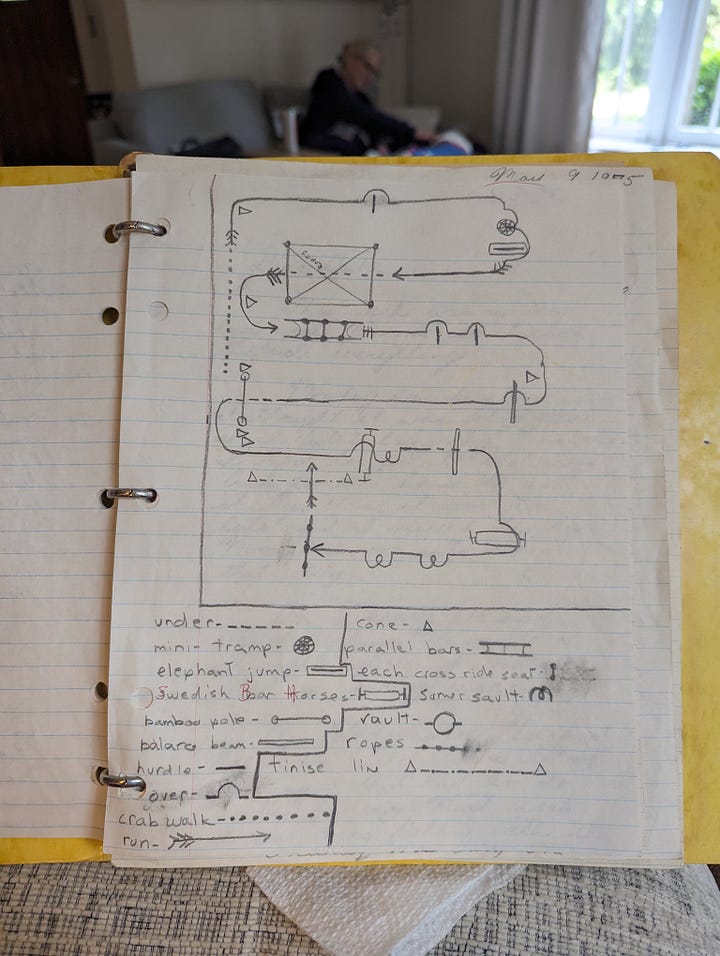 May 9 1975
under-
cone-
mini- tramp-
parallel bars-
elephant jump-
each cross ride seat-
Swedish Boar Horses-
Somer sault-
bamboo pole-
vault-
balance beam-
ropes
hurdle-
finise lin
over-
crab walk-
run-